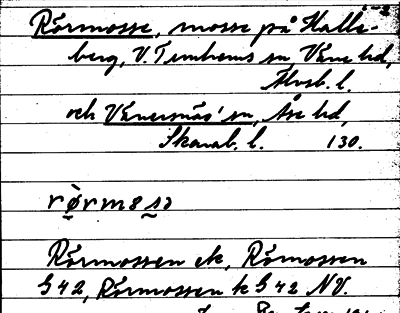 Rörmosse, mosse på Halle-
berg, V. Tunhems sn, Väne hd,
Älvsb. l.
och Vänersnäs' sn, Åse hd,
Skarab. l. 130.
Rörmossen ek, Rörmossen
G 42, Rörmossen k G 42 NV.